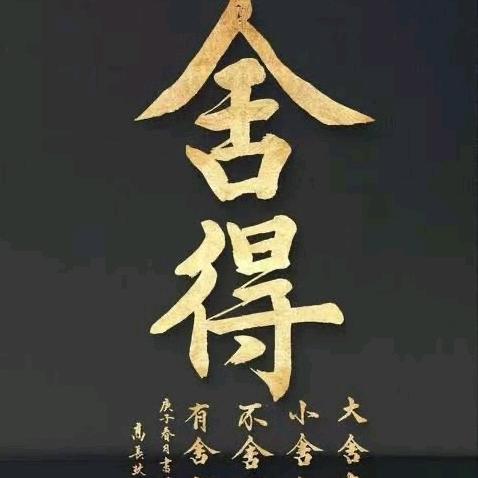 舍得
大舍
小舍
不舍
有舍
庚子春月書